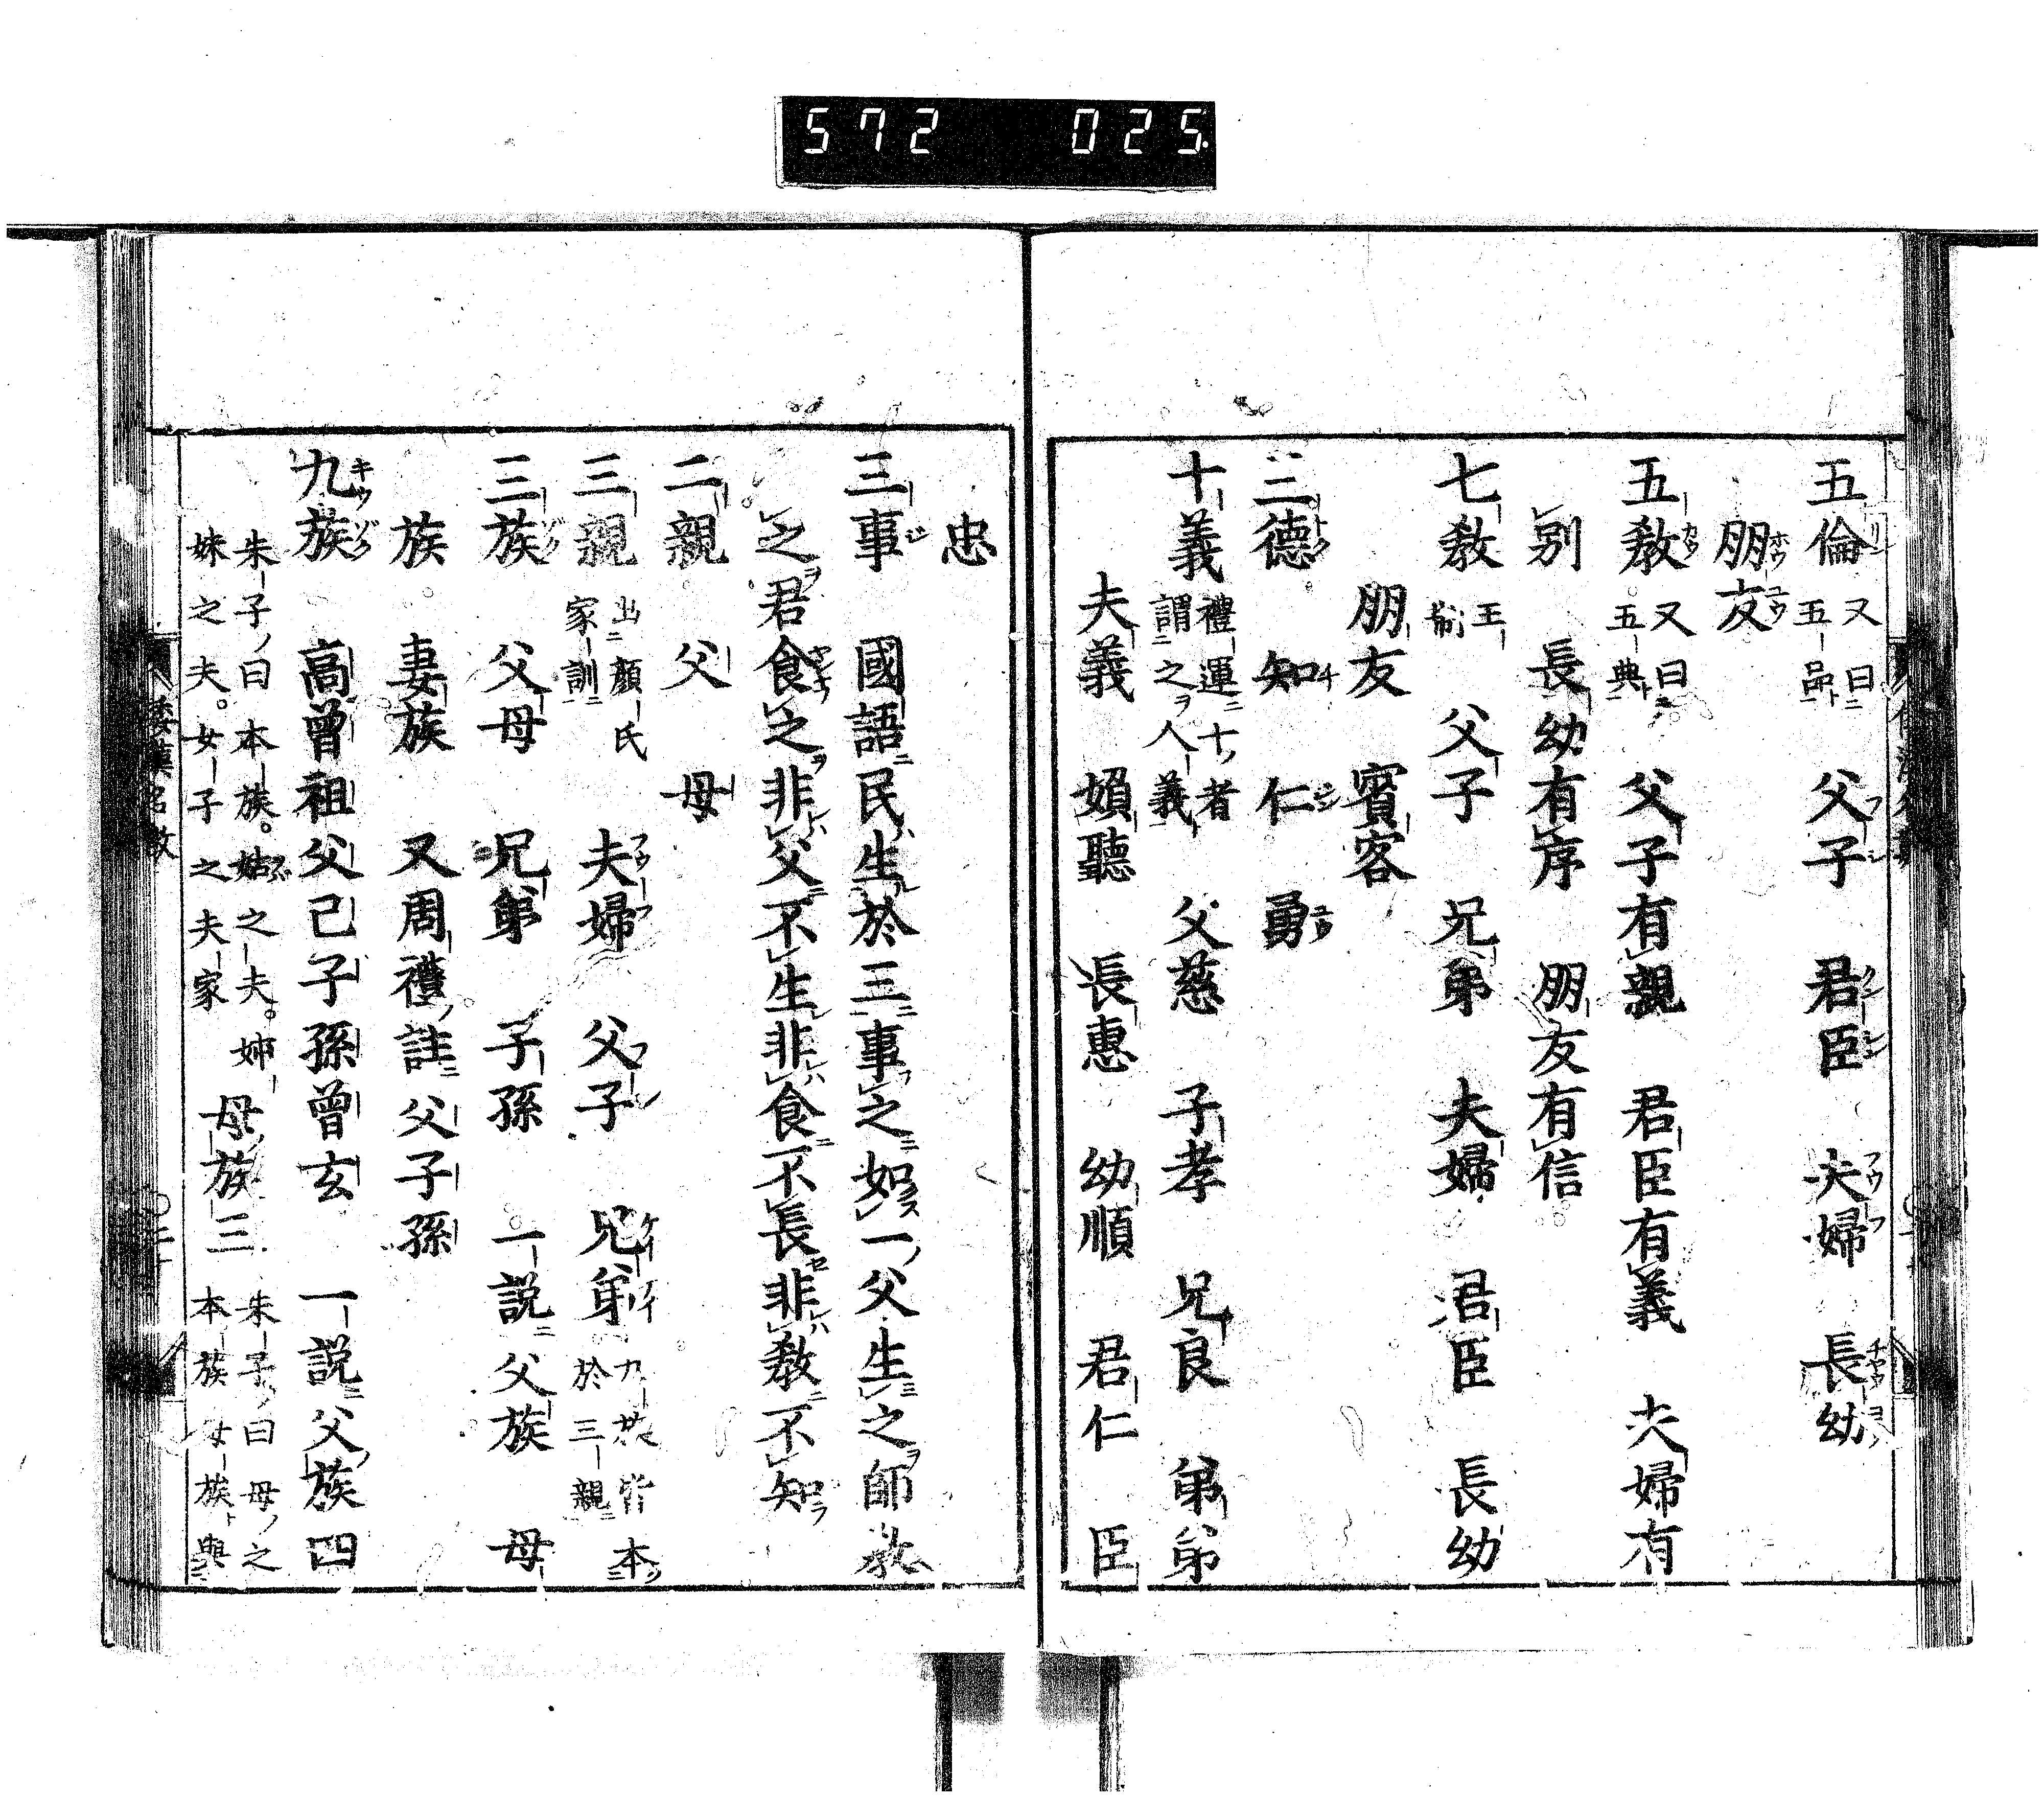 572 025
五倫 又曰五品 父子 君臣 夫婦 長幼
朋友
五教 又曰五典 父子有親 君臣有義 夫婦有
別 長幼有序 朋友有信
七教 王制 父子 兄弟 夫婦 君臣 長幼
朋友 賓客
三德 知 仁 勇
十義 禮運十者謂之人義 父慈 子孝 兄良 弟弟
夫義 婦聽 長惠 幼順 君仁 臣
忠
三事 國語民生於三事之如一父生之師教
之君食之非父不生非食不長非教不知
二親 父 母
三親 出顏氏家訓 夫婦 父子 兄弟 九族皆本於三親
三族 父母 兄弟 子孫 一說父族 母
族 妻族 又周禮註父子孫
九族 高曾祖父己子孫曾玄 一說父族四
朱子曰本族。姑之夫。姉
妹之夫。女子之夫家 母族三 朱子曰母之
本族母族與
倭漢名数